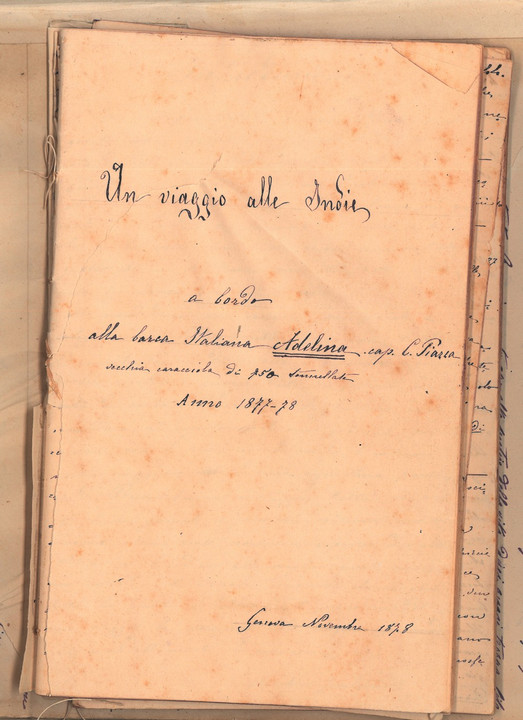 Un viaggio alle Indie
a bordo
alla barca Italiana Adelina cap. C. Piazza
vecchia caracciola di 750 tonnellate
Anno 1877-78
Genova Novembre 1878